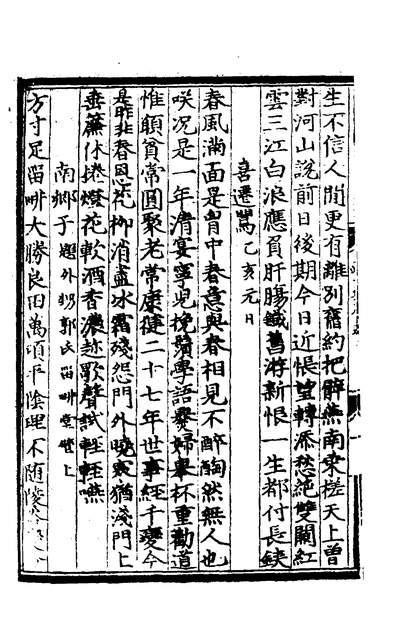 生不信人間更有離別舊約把醉燕南乘槎天上曾
對河山說前日後期今日近悵望轉添愁絶雙闕紅
雲三江白浪應負肝腸鐵舊游新恨一生都付長鋏
喜遷鶯乙亥元日
春風滿面是胷中春意與春相見不醉陶然無人也
咲况是一年清宴寧兒挽鬚學語髮婦舉杯重勸道
惟願貧常圓聚老常康健二十七年世事經千變今
是昨非春恩花柳消盡冰霜殘怨門外曉寒猶淺門上
垂簾休捲燈花軟酒香濃趁歌聲試輕輕嚥
南鄉子題外舅郭氏留畊堂壁上
方寸足留畊大勝良田萬頃平陰理不隨陵谷